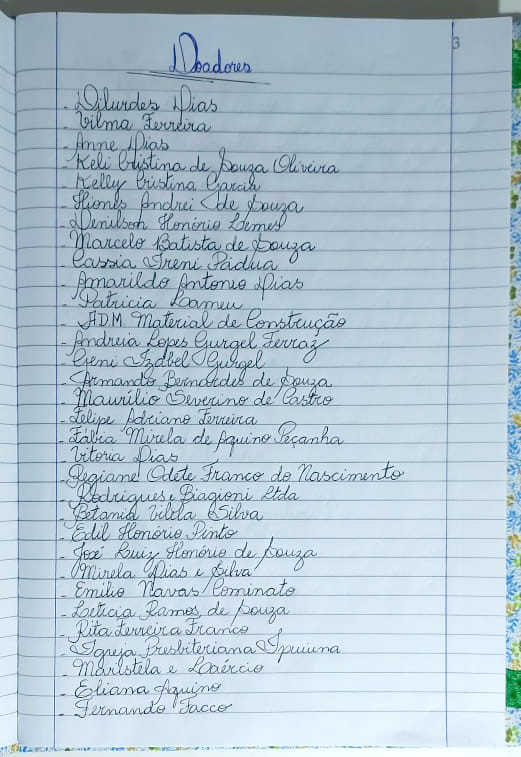 3
Doadores
- Dilurdes Dias
- Vilma Ferreira
- Anne Dias
- Keli Cristina de Souza Oliveira
- Kelly Cristina Garcia
- Hionis Andrei de Souza
- Denilson Honório Lemes
- Marcelo Batista de Souza
- Cassia Ireni Pádua
- Amarildo Antonio Dias
- Patricia Dameu
- ADM Material de Construção
- Andreia Lopes Gurgel Ferraz
- Geni Izabel Gurgel
- Armando Bernardes de Souza
- Maurílio Severino de Castro
- Felipe Adriano Ferreira
- Fábia Mirela de Aquino Peçanha
- Vitoria Dias
- Regiane Odete Franco do Nascimento
- Rodrigues e Biagioni Ltda
- Betania Vilela Silva
- Edil Honório Pinto
- José Luiz Honório de Souza
- Mirela Dias e Silva
- Emilio Navas Cominato
- Leticia Ramos de Souza
- Rita Ferreira Franco
- Igreja Presbiteriana Ipuiuna
- Maristela e Laércio
- Eliana Aquino
- Fernando Facco